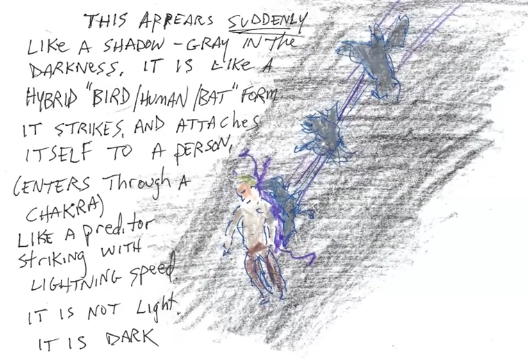 THIS APPEARS SUDDENLY
LIKE A SHADOW - GRAY IN THE
DARKNESS. IT IS LIKE A
HYBRID "BIRD/HUMAN/BAT" FORM
IT STRIKES, AND ATTACHES
ITSELF TO A PERSON,
(ENTERS THROUGH A
CHAKRA)
LIKE A PREDITOR
STRIKING WITH
LIGHTNING SPEED.
IT IS NOT LIGHT.
IT IS DARK